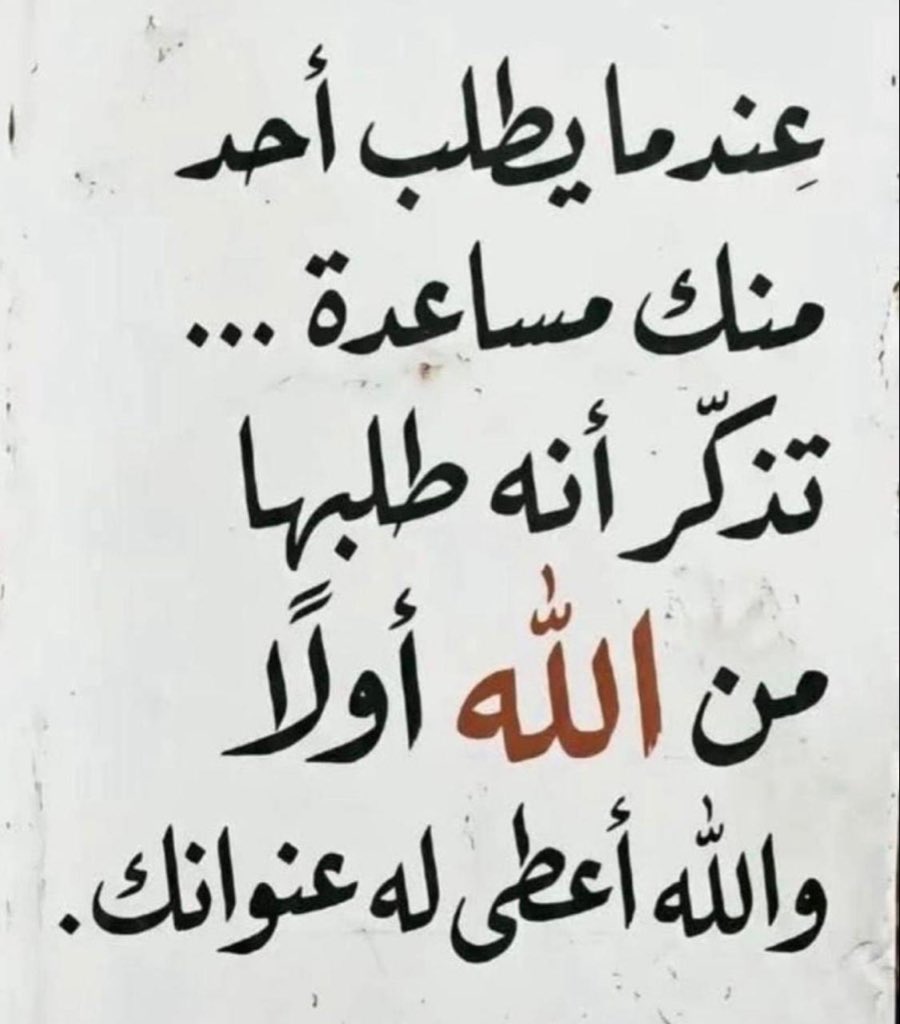 عِندما يطلب أحد
منك مساعدة ...
تذكّر أنه طلبها
من اللّٰه أولًا
واللّٰه أعطى له عنوانك.